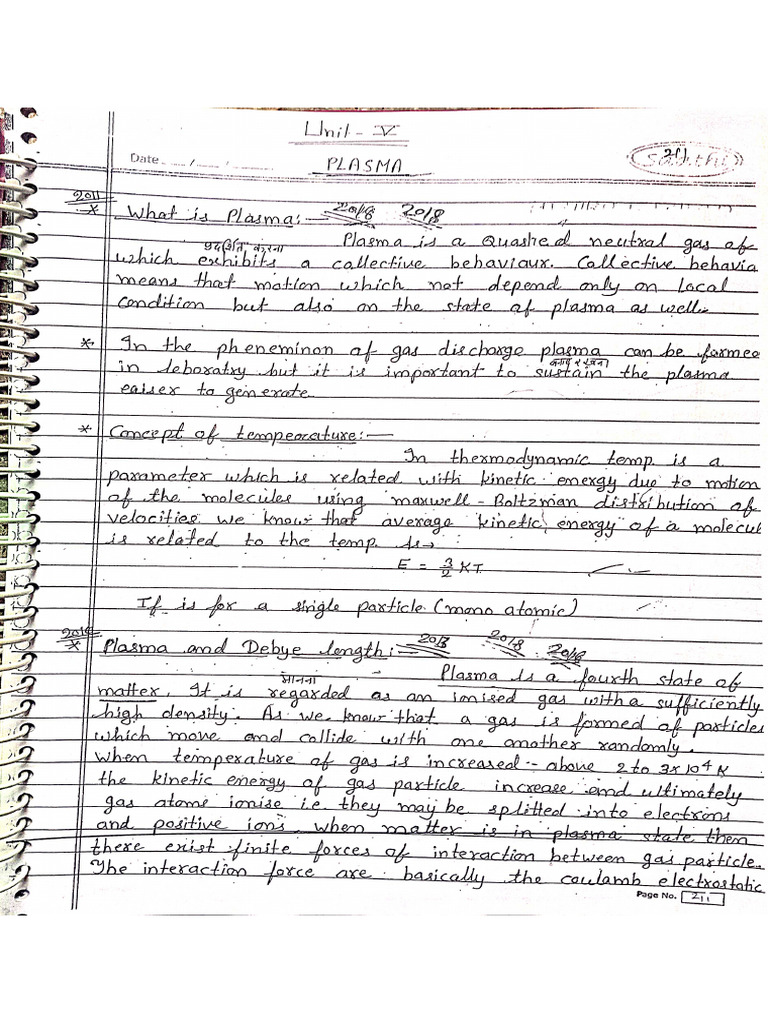 Unit - V
Date ___/___/___
PLASMA
Sarthi
211
2011
* What is Plasma:— 2016 2018
प्रदर्शित करना
Plasma is a Quashed neutral gas of
which exhibits a collective behaviour. Collective behavia
means that motion which not depend only on local
condition but also on the state of plasma as well.
* In the pheneminon of gas discharge plasma can be formee
in leboratry but it is important to sustain the plasma
eaiser to generate
* Concept of tempearature:—
In thermodynamic temp. is a
parameter which is related with kinetic energy due to motion
of the molecules using maxwell-Boltzman distribution of
velocities we know that average kinetic energy of a molecul
is related to the temp. As→
E = 3/2 KT
If is for a single particle (mono atomic)
* Plasma and Debye length:— 2018 2016
मानना
Plasma is a fourth state of
matter. It is regarded as an ionised gas with a sufficiently
high density. As we know that a gas is formed of particles
which move and collide with one another randomly.
When temperature of gas is increased - above 2 to 3×10⁴ K
the kinetic energy of gas particle increase and ultimately
gas atoms ionise i.e. they may be splitted into electrons
and positive ions. When matter is in plasma state then
there exist finite forces of interaction between gas particle.
The interaction force are basically the coulamb electrostatic
Page No. 211